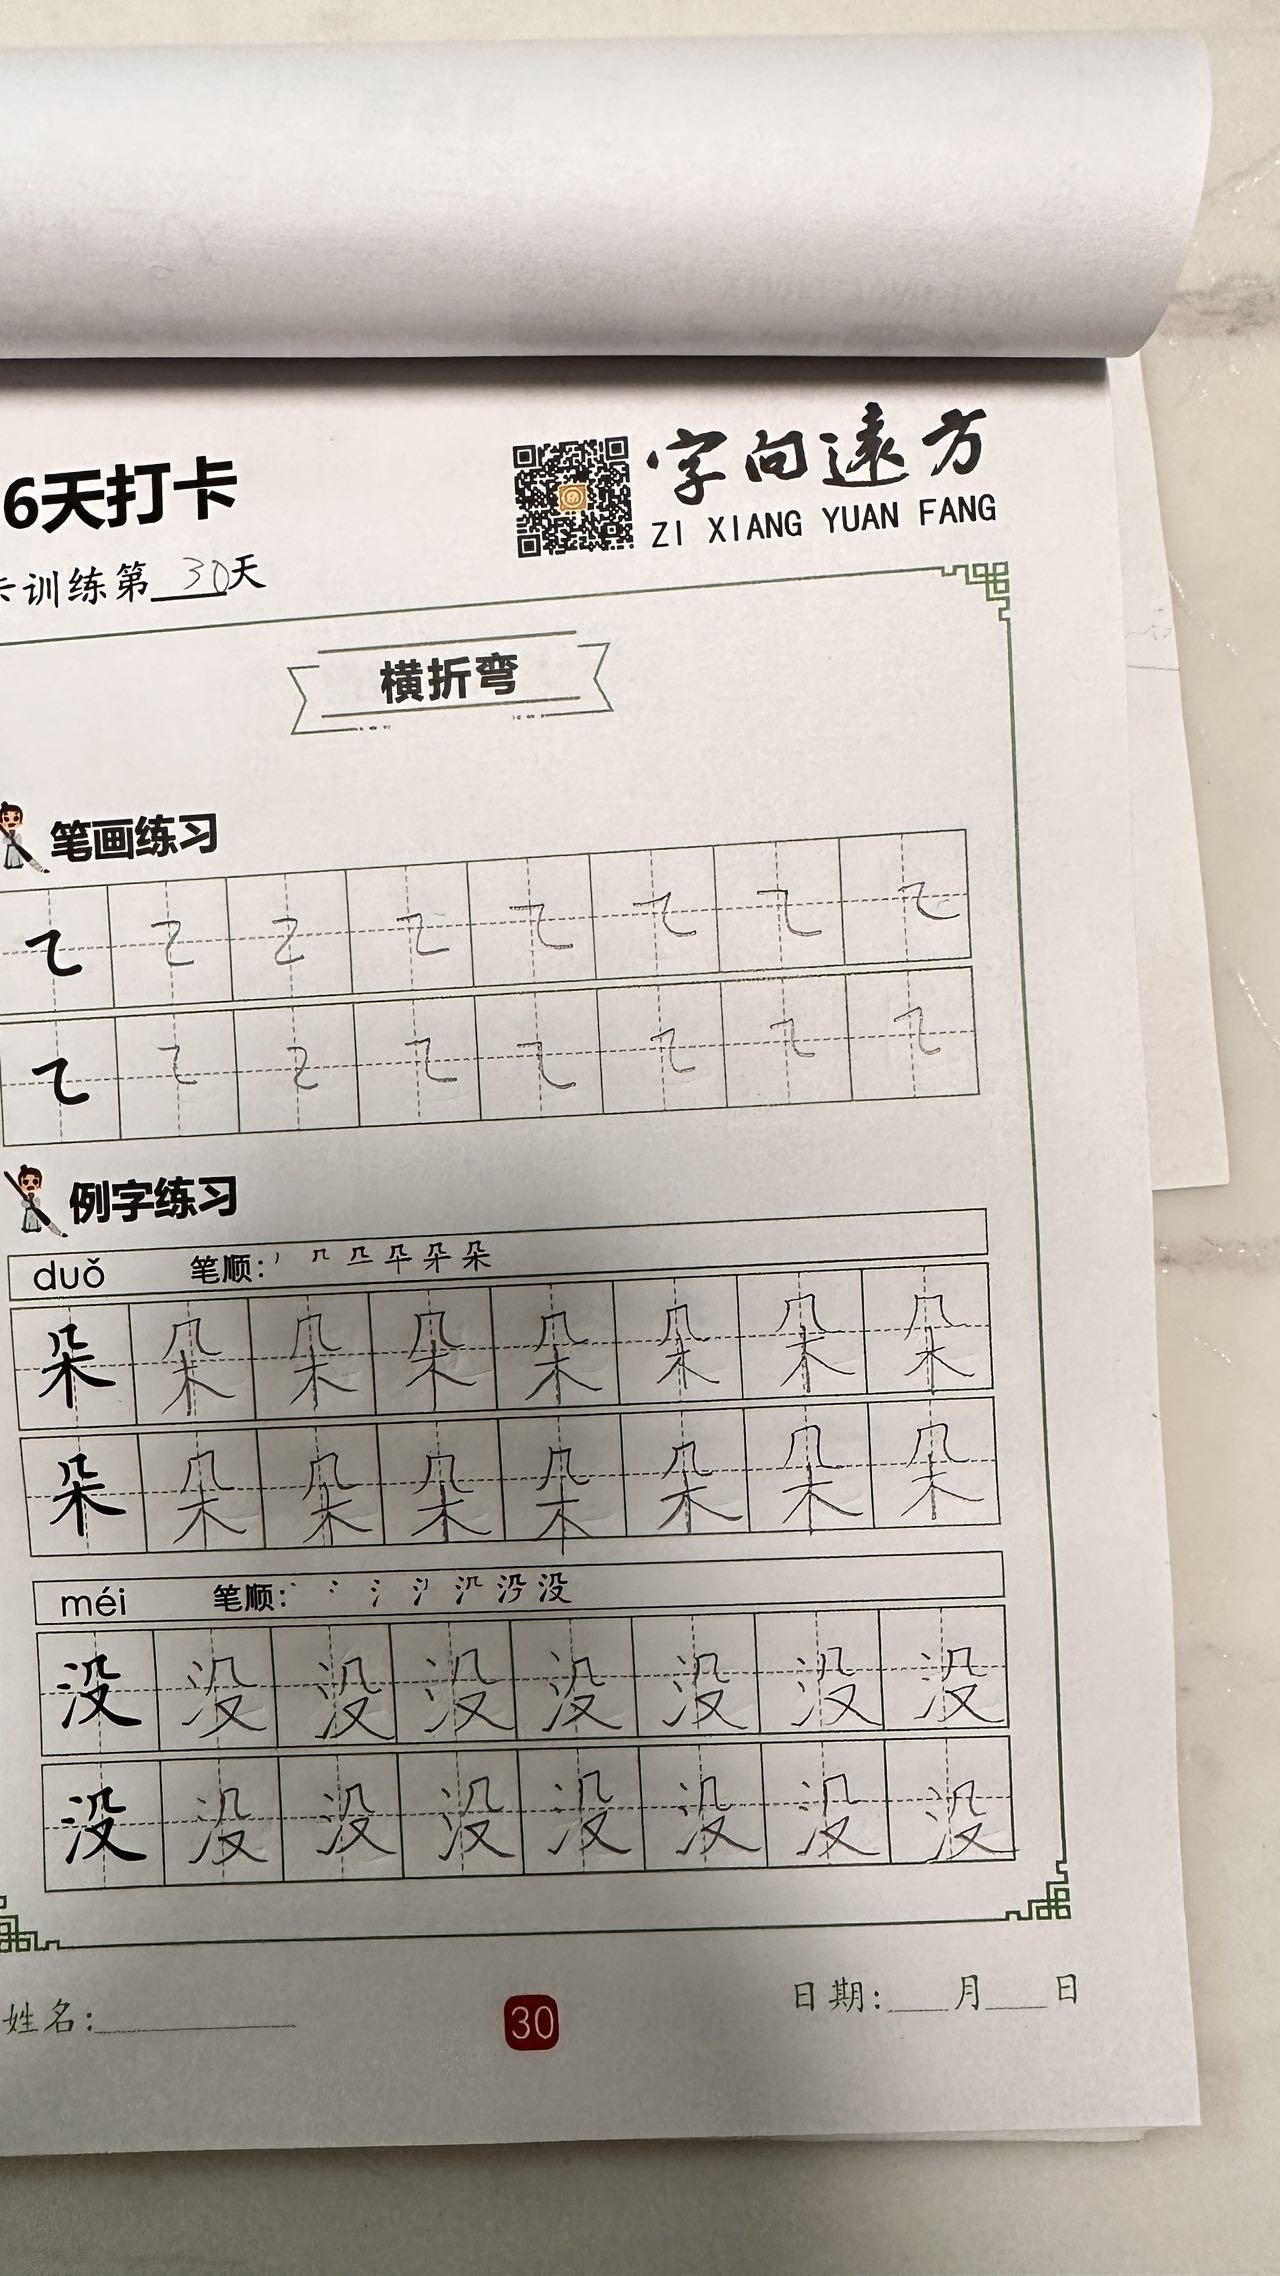 字向遠方
ZI XIANG YUAN FANG
6天打卡
卡训练第 30 天
横折弯
笔画练习
例字练习
duǒ 笔顺: 朵
朵 朵 朵 朵 朵 朵 朵 朵
朵 朵 朵 朵 朵 朵 朵 朵
méi 笔顺: 没
没 没 没 没 没 没 没 没
没 没 没 没 没 没 没 没
姓名: 30 日期: 月 日